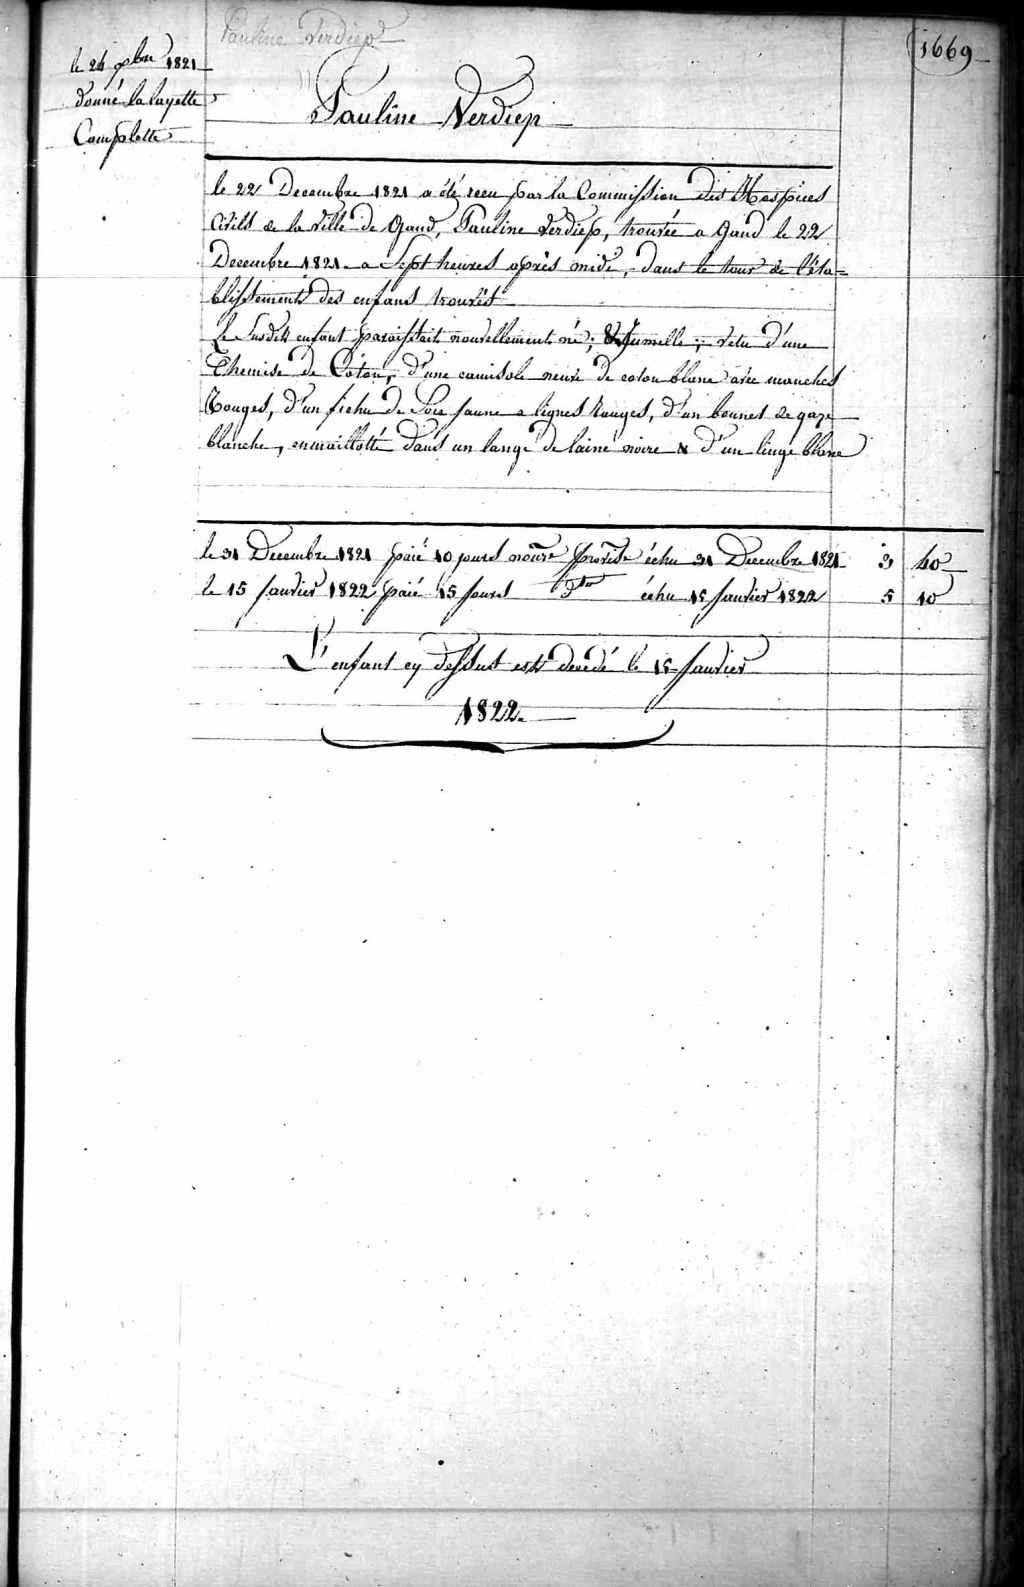 Pauline Verdiep
1669
le 24 xbre 1821
donné la layette
Complette
Pauline Verdiep
le 22 Decembre 1821 a été recu par la Commission des Hospices
Civils de la ville de Gand, Pauline Verdiep, trouvée a Gand le 22
Decembre 1821 a Sept heures après midi, dans le tour de l'éta=
blissement des enfans trouvés
Le Susdit enfant paraissait nouvellement né, & Jumelle; vetu d'une
Chemise de Coton, d'une camisole neuve de coton blanc avec manches
Rouges, d'un fichu de Soie jaune a lignes Rouges, d'un bonnet de gaze
blanche, enmaillotté dans un lange de laine noire & d'un linge blanc
le 31 Decembre 1821 paié 10 jours nourre provise échu 31 Decembre 1821 3 40
le 15 Janvier 1822 paié 15 jours dto échu 15 Janvier 1822 5 10
L'enfant cy dessus est decedé le 15 Janvier
1822.